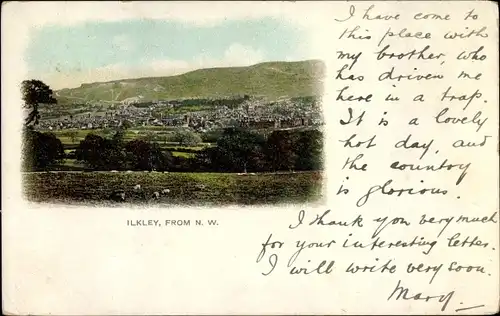 I have come to
this place with
my brother, who
has driven me
here in a trap.
It is a lovely
hot day, and
the country
is glorious.
ILKLEY, FROM N. W.
I thank you very much
for your interesting letter.
I will write very soon.
Mary.